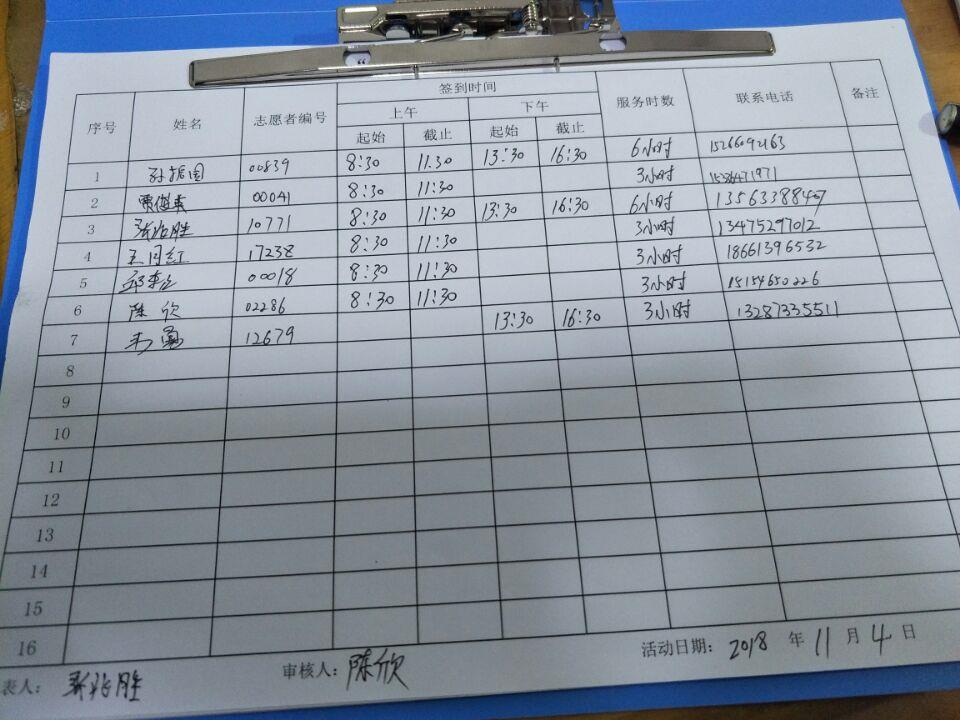 签到时间
序号 姓名 志愿者编号 上午 下午 服务时数 联系电话 备注
起始 截止 起始 截止
1 00839 8:30 11:30 13:30 16:30 6小时 15266092163
2 00041 8:30 11:30 3小时
3 张兆胜 10771 8:30 11:30 13:30 16:30 6小时
4 17238 8:30 11:30 3小时 13475297012
5 00018 8:30 11:30 3小时 18661396532
6 陈欣 02286 8:30 11:30 3小时 15154650226
7 12679 13:30 16:30 3小时 13287335511
8
9
10
11
12
13
14
15
16
表人: 张兆胜 审核人: 陈欣 活动日期: 2018 年 11 月 4 日